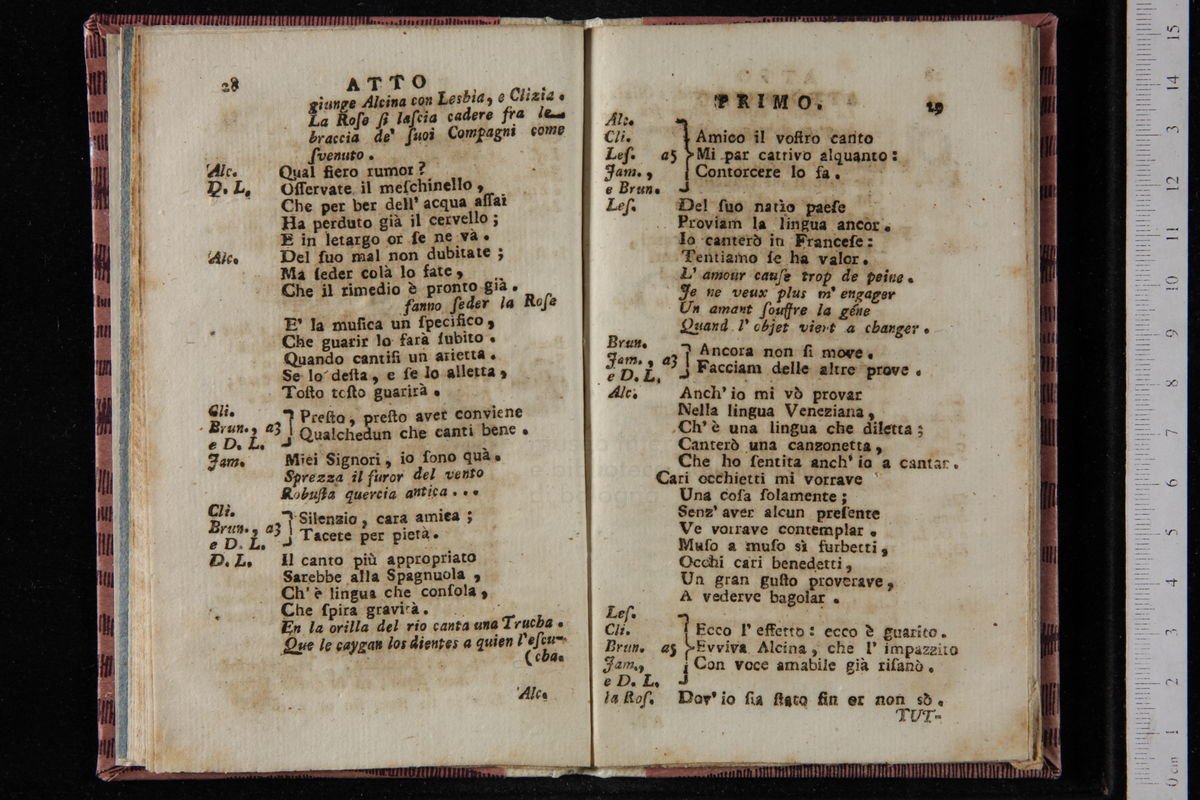 28
ATTO
giunge Alcina con Lesbia, e Clizia.
La Rose ſi laſcia cadere fra le
braccia de' ſuoi Compagni come
ſvenuto.
Alc. Qual fiero rumor?
D. L. Oſſervate il meſchinello,
Che per ber dell' acqua aſſai
Ha perduto già il cervello;
E in letargo or ſe ne và.
Alc. Del ſuo mal non dubitate;
Ma ſeder colà lo fate,
Che il rimedio è pronto già.
fanno ſeder la Roſe
E' la muſica un ſpecifico,
Che guarir lo farà ſubito.
Quando cantiſi un arietta.
Se lo deſta, e ſe lo alletta,
Toſto toſto guarirà.
Cli.
Brun., a3
e D. L.
Preſto, preſto aver conviene
Qualchedun che canti bene.
Jam. Miei Signori, io ſono quà.
Sprezza il furor del vento
Robuſta quercia antica...
Cli.
Brun., a3
e D. L.
Silenzio, cara amica;
Tacete per pietà.
D. L. Il canto più appropriato
Sarebbe alla Spagnuola,
Ch' è lingua che conſola,
Che ſpira gravità.
En la orilla del rio canta una Trucha.
Que le caygan los dientes a quien l'eſcu-
(cha.
Alc.
PRIMO.
29
Alc.
Cli.
Leſ. a5
Jam.,
e Brun.
Amico il voſtro canto
Mi par cattivo alquanto:
Contorcere lo fa.
Leſ. Del ſuo natìo paeſe
Proviam la lingua ancor.
Io canterò in Franceſe:
Tentiamo ſe ha valor.
L' amour cauſe trop de peine.
Je ne veux plus m' engager
Un amant ſouffre la gêne
Quand l' objet vient a changer.
Brun.
Jam., a3
e D. L.
Ancora non ſi move.
Facciam delle altre prove.
Alc. Anch' io mi vò provar
Nella lingua Veneziana,
Ch' è una lingua che diletta;
Canterò una canzonetta,
Che ho ſentita anch' io a cantar.
Cari occhietti mi vorrave
Una coſa ſolamente;
Senz' aver alcun preſente
Ve vorrave contemplar.
Muſo a muſo sì furbetti,
Occhi cari benedetti,
Un gran guſto proverave,
A vederve bagolar.
Leſ.
Cli.
Brun. a5
Jam.,
e D. L.
Ecco l' effetto: ecco è guarito.
Evviva Alcina, che l' impazzito
Con voce amabile già riſanò.
la Roſ. Dov' io ſia ſtato fin or non sò.
TUT-